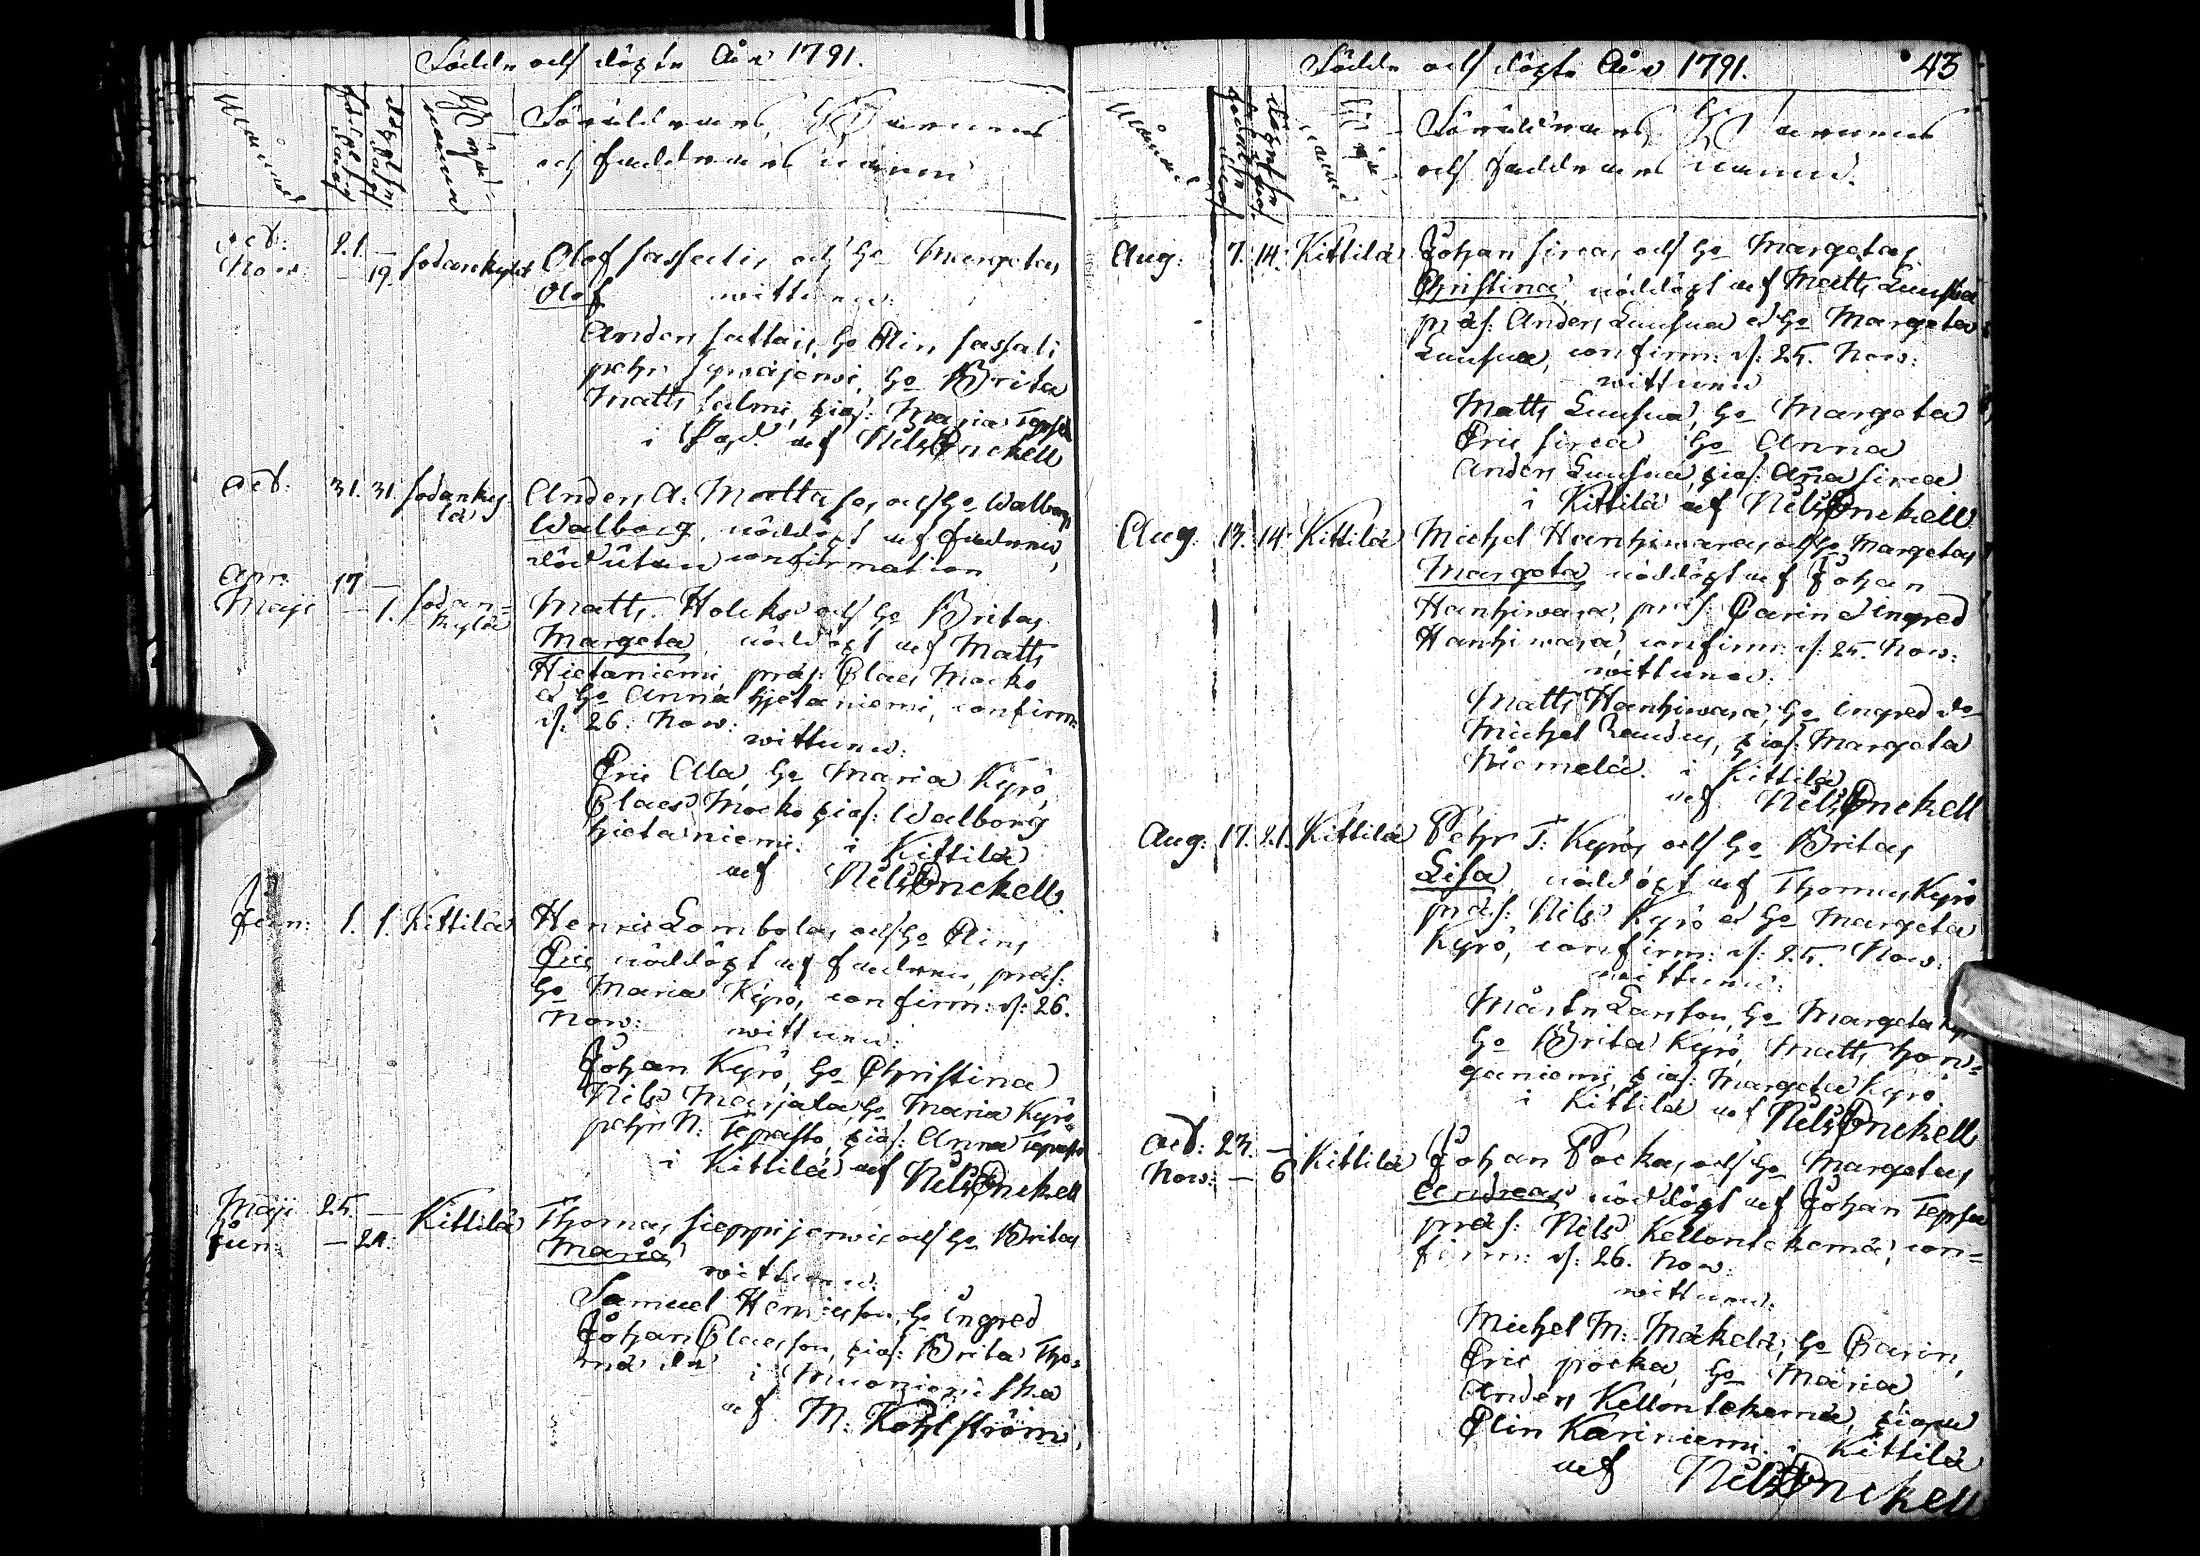 Födde och döpte År 1791.
Månad
födelse dag
döpelse dag
Byns namn
Föräldrarnes, Barnens
och faddrarnes namn
Oct: 21. —
Now: — 19. Sodankylä Olof Sassalis och H:o Margetas
Olof wittnen:
Anders Sattais, H:o Elin Sassali
pehr Sywäjerwi, H:o Brita
Matts Salmi, pig: Maria Tepsa
i af Nils Fnckell
Oct: 31. 31. Sodanky- Anders A: Mattas och H:o Walborgs
lä Walborg, nöddöpt af fadren,
död utan confirmation
Apr: 17 —
Maji — 1. Sodan= Matts Holcks och H:o Britas
kylä Margeta, nöddöpt af Matts
Hietaniemi, præs: Claes Mocko
et H:o Anna Hjetaniemi, confirm:
d: 26. Now: wittnen:
Eric Alla, H:o Maria Kyrö,
Claes Mocko pig: Walborg
Hietaniemi. i Kittilä
af Nils Fnckell
Jan: 1. 1. Kittilä Henric Lombolas och H:o Elins
Eric nöddöpt af fadren, præs:
H:o Maria Kyrö, confirm: d: 26.
Now: wittnen:
Johan Kyrö, H:o Christina
Nils Marjala, H:o Maria Kyrö
pehr N: Tepasto, pig: Anna Tepasto
i Kittilä af Nils Fnckell
Maji 25. —
Jun: — 24. Kittilä Thomas Sieppijerwis och H:o Britas
Maria wittnen:
Samuel Henricsson, H:o Ingred
Johan Claesson, pig: Brita Tho=
mæ d:r i Muonioniska
af M. Kohlström
Födde och döpte År 1791. 43
Månad
födelse dag
döpelse dag
Byns namn
Föräldrarnes, Barnens
och faddrarnes namn.
Aug: 7. 14. Kittilä Johan Sircas och H:o Margetas
Christina, nöddöpt af Matts Luusua
præs: Anders Luusua et H:o Margeta
Luusua, confirm: d: 25. Now:
wittnen
Matts Luusua, H:o Margeta
Eric Sirca H:o Anna
Anders Luusua, pig: Anna Sirca
i Kittilä af Nils Fnckell
Aug: 13. 14. Kittilä Michel Hanhiwaras och H:o Margetas
Margeta, nöddöpt af Johan
Hanhiwara, præs: Carin et Ingred
Hanhiwara, confirm: d: 25. Now:
wittnen:
Matts Hanhiwara, H:o Ingred d:o
Michel Raudus, pig: Margeta
Niemelä. i Kittilä
af Nils Fnckell
Aug: 17. 21. Kittilä Pehr T: Kyrös och H:o Britas
Lisa, nöddöpt af Thomas Kyrö
præs: Nils Kyrö et H:o Margeta
Kyrö, confirm: d: 25. Now:
wittnen:
Mårten Larsson, H:o Margeta Kyrö
H:o Brita Kyrö, Matts Hon=
ganiemi, pig: Margeta Kyrö
i Kittilä af Nils Fnckell
Oct: 23. —
Now: — 6. Kittilä Johan Pockas och H:o Margetas
Andreas, nöddöpt af Johan Tepsa
præs: Nils Kellontekemä, con=
firm: d: 26. Now:
wittnen:
Michel M: Mäkelä, H:o Carin,
Eric pocka, H:o Maria
Anders Kellontekemä, pigan
Elin Kariniemi. i Kittilä
af Nils Fnckell